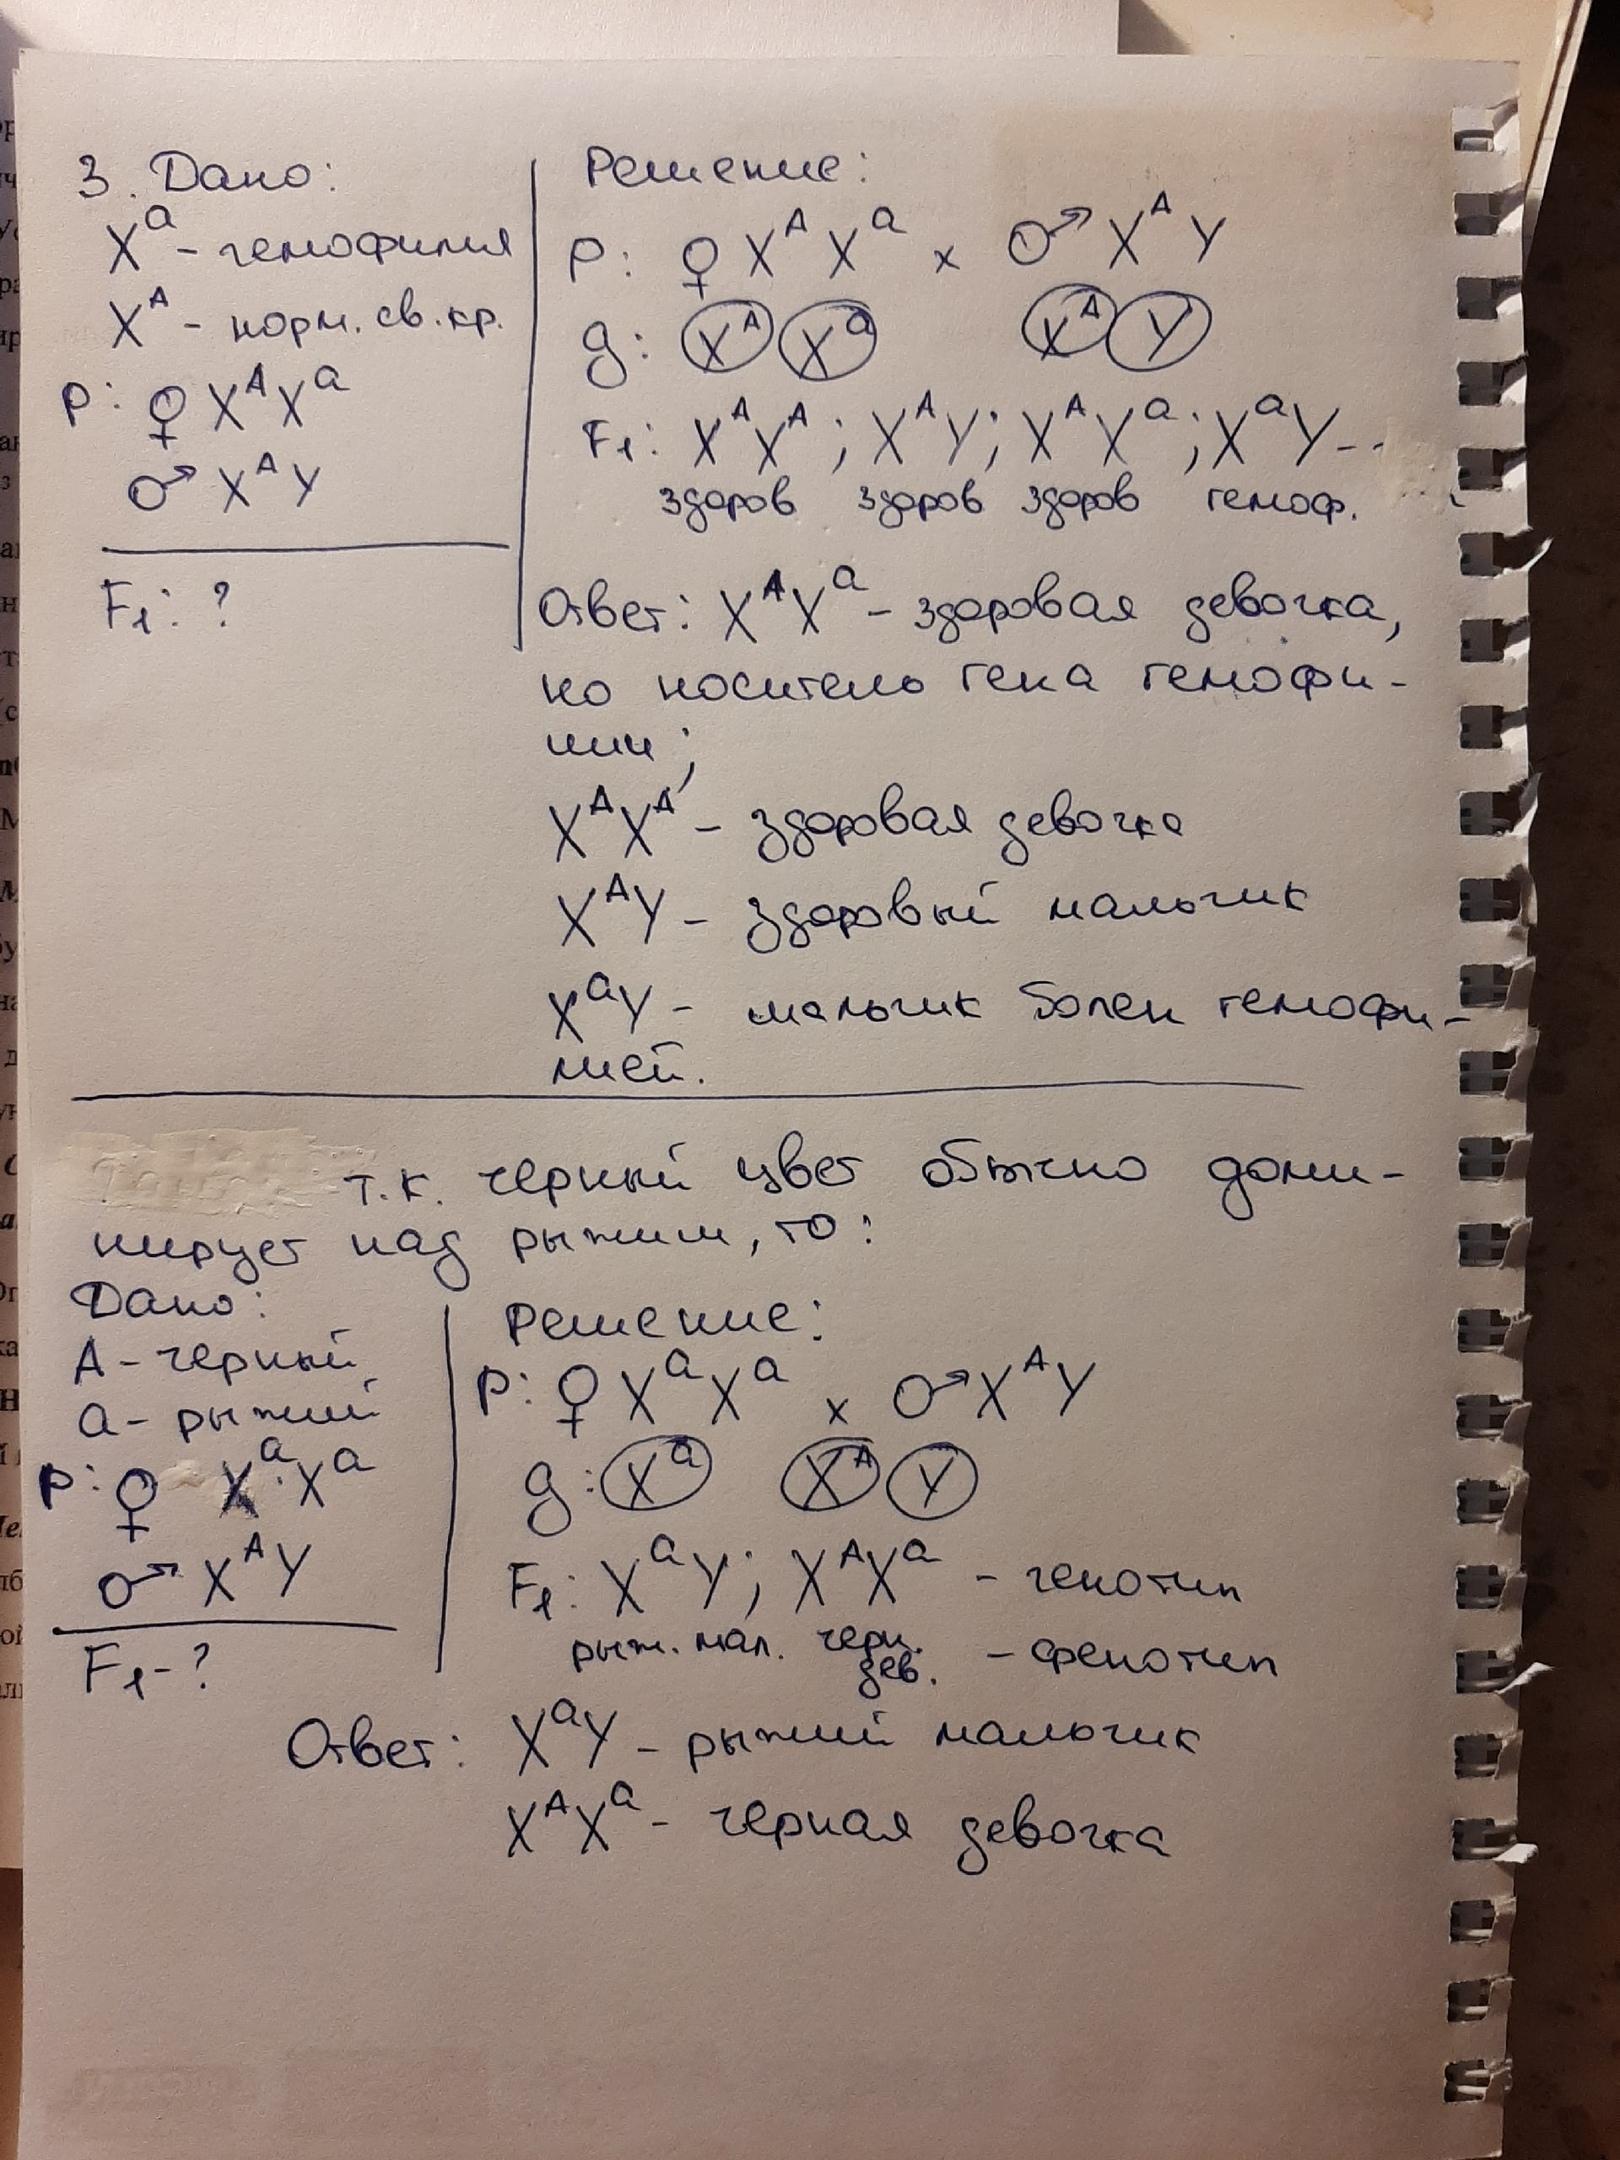 3. Дано:
X^a - гемофилия
X^A - норм. св. кр.
P: ♀ X^A X^a
♂ X^A Y
F₁: ?
Решение:
P: ♀ X^A X^a x ♂ X^A Y
g: X^A X^a X^A Y
F₁: X^A X^A; X^A Y; X^A X^a; X^a Y - -
здоров здоров здоров гемоф.
Ответ: X^A X^a - здоровая девочка,
но носитель гена гемофи-
лии;
X^A X^A - здоровая девочка
X^A Y - здоровый мальчик
X^a Y - мальчик болен гемофи-
лией.
т.к. черный цвет обычно доми-
нирует над рыжим, то:
Дано:
A - черный
a - рыжий
P: ♀ X^a X^a
♂ X^A Y
F₁ - ?
Решение:
P: ♀ X^a X^a x ♂ X^A Y
g: X^a X^A Y
F₁: X^a Y; X^A X^a - генотип
рыж. мал. черн. - фенотип
дев.
Ответ: X^a Y - рыжий мальчик
X^A X^a - черная девочка